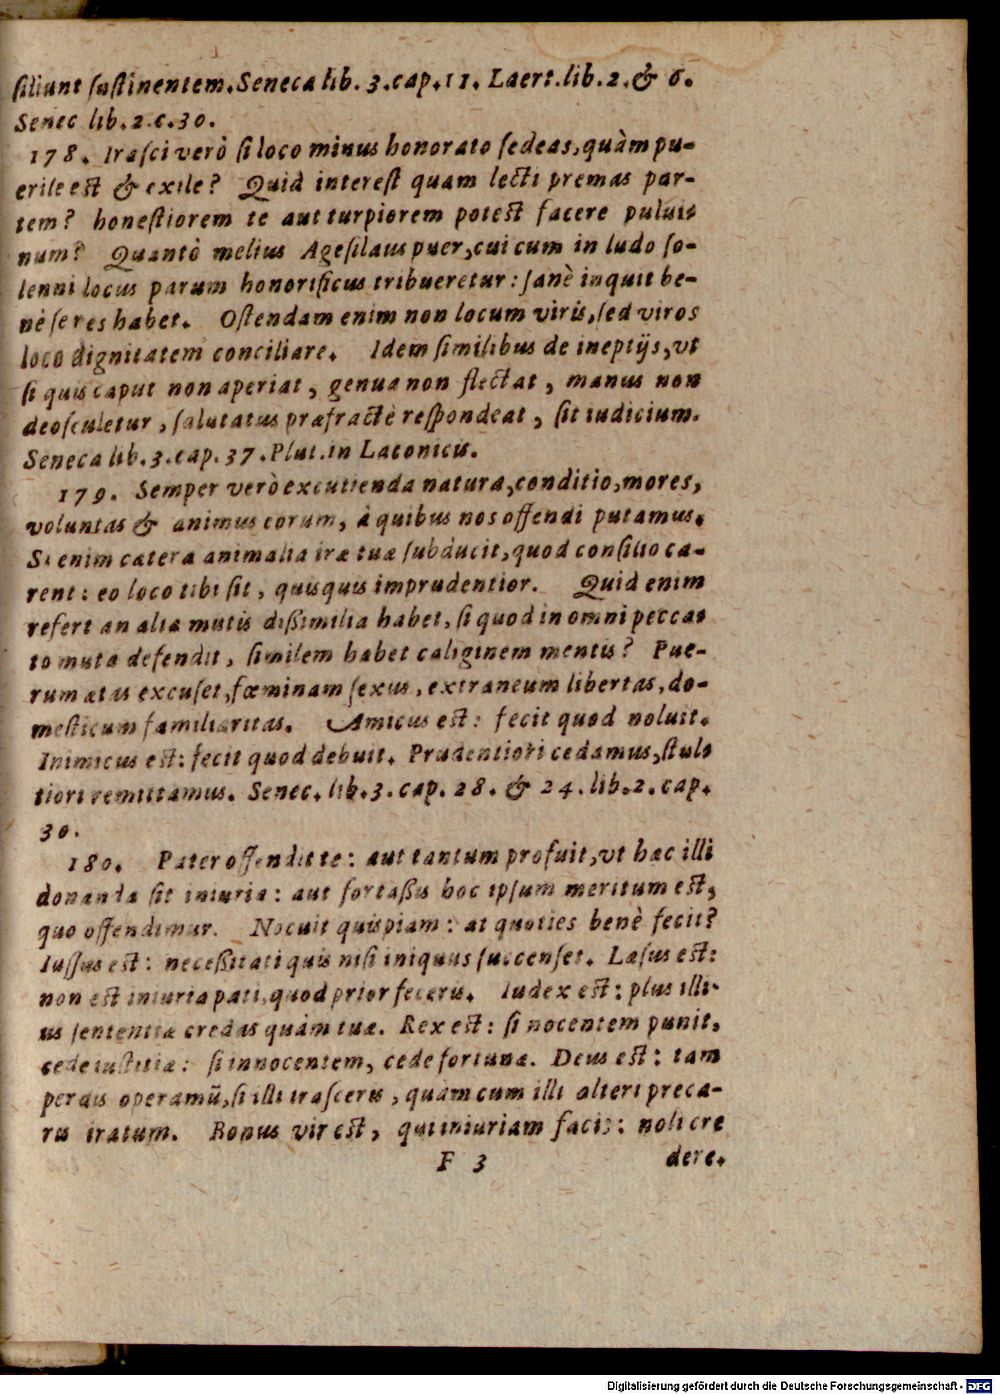 ſiliunt ſuſtinentem. Seneca lib. 3. cap. 11. Laert. lib. 2. & 6.
Senec lib. 2. c. 30.
178. Iraſci verò ſi loco minus honorato ſedeas, quàm pu-
erile eſt & exile? Quid intereſt quam lecti premas par-
tem? honeſtiorem te aut turpiorem poteſt facere puluis
num? Quantò melius Ageſilaus puer, cui cum in ludo ſo-
lenni locus parum honorificus tribueretur: ſanè inquit be-
nè ſe res habet. Oſtendam enim non locum viris, ſed viros
loco dignitatem conciliare. Idem ſimilibus de ineptijs, vt
ſi quis caput non aperiat, genua non flectat, manus non
deoſculetur, ſalutatus præfractè reſpondeat, ſit iudicium.
Seneca lib. 3. cap. 37. Plut. in Laconicis.
179. Semper verò excutienda natura, conditio, mores,
voluntas & animus eorum, à quibus nos offendi putamus.
Si enim cætera animalia iræ tuæ ſubducit, quod conſilio ca-
rent: eo loco tibi ſit, quisquis imprudentior. Quid enim
refert an alia mutis dißimilia habet, ſi quod in omni peccas
to muta defendit, ſimilem habet caliginem mentis? Pue-
rum ætas excuſet, fœminam ſexus, extraneum libertas, do-
meſticum familiaritas. Amicus eſt: fecit quod noluit.
Inimicus eſt: fecit quod debuit. Prudentiori cedamus, ſtuls
tiori remittamus. Senec. lib. 3. cap. 28. & 24. lib. 2. cap.
30.
180. Pater offendit te: aut tantum profuit, vt hæc illi
donanda ſit iniuria: aut fortaßis hoc ipſum meritum eſt,
quo offendimur. Nocuit quispiam: at quoties benè fecit?
Iuſſus eſt: neceßitati quis niſi iniquus ſuccenſet. Læſus eſt:
non eſt iniuria pati, quod prior feceris. Iudex eſt: plus illi-
us ſententiæ credas quàm tuæ. Rex eſt: ſi nocentem punit,
cede iuſtitiæ: ſi innocentem, cede fortunæ. Deus eſt: tam
perdis operamũ, ſi illi iraſceris, quàm cum illi alteri preca-
ris iratum. Bonus vir eſt, qui iniuriam facit: noli cre
F 3 dere.
Digitalisierung gefördert durch die Deutsche Forschungsgemeinschaft - DFG